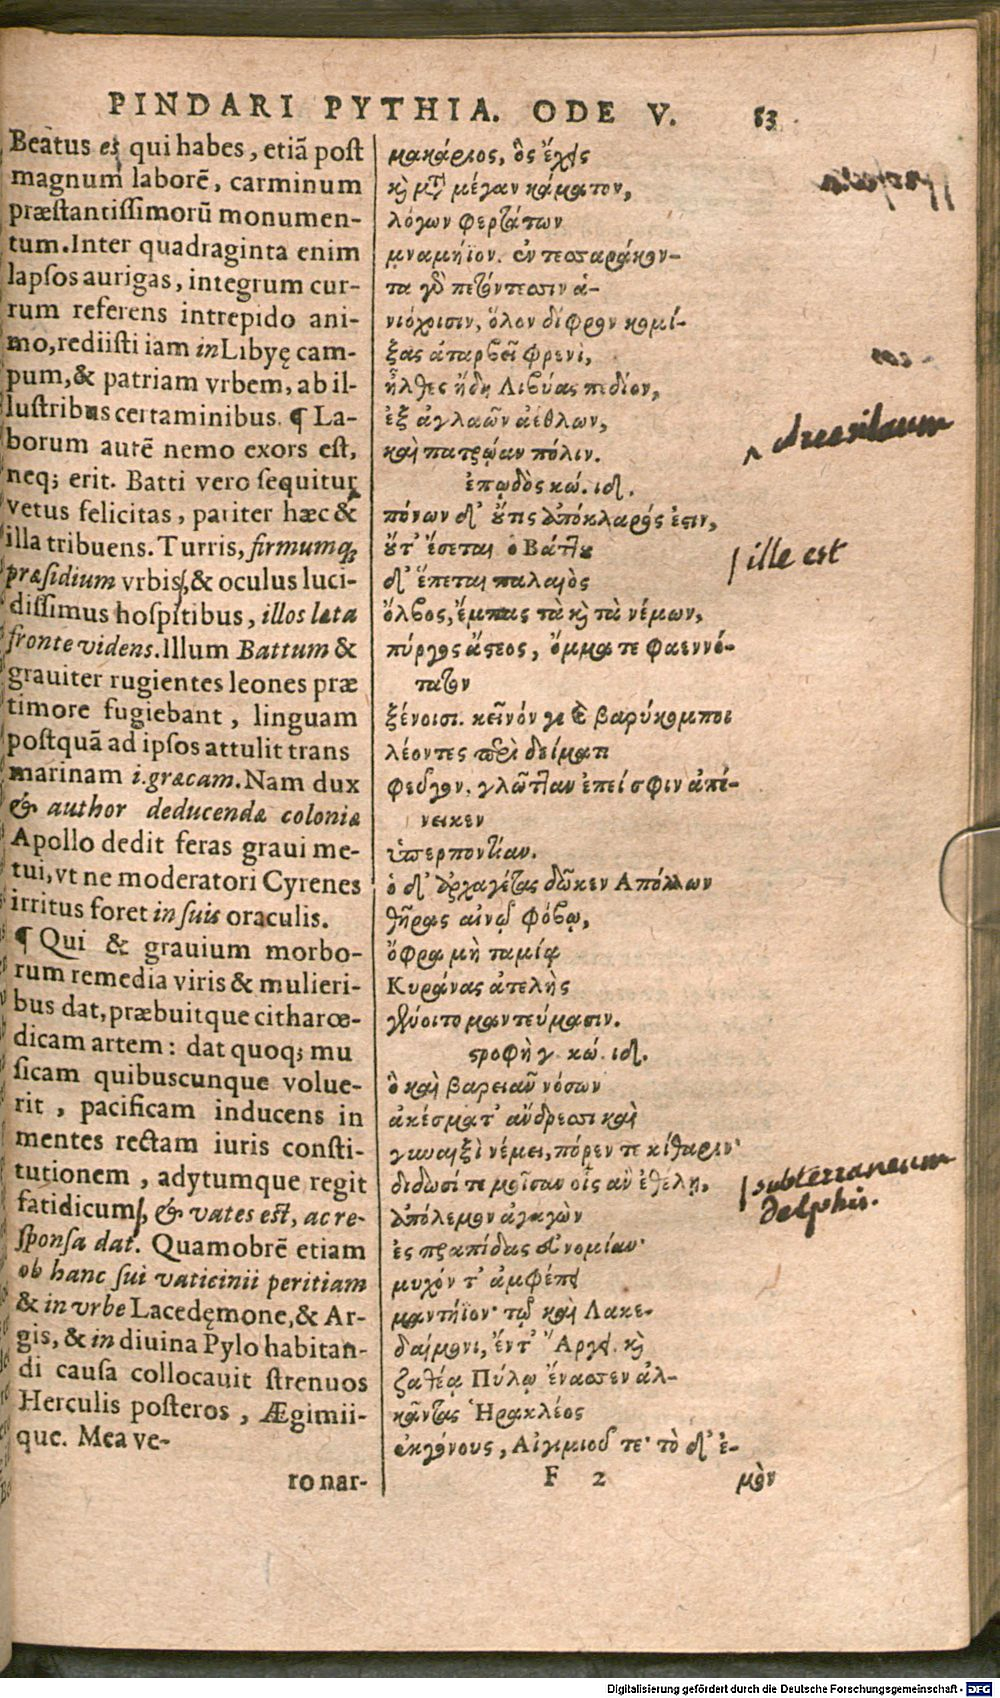 PINDARI PYTHIA. ODE V. 83
Beatus es qui habes, etiā post
magnum laborē, carminum
præstantissimorū monumen-
tum. Inter quadraginta enim
lapsos aurigas, integrum cur-
rum referens intrepido ani-
mo, rediisti iam in Libyę cam-
pum, & patriam vrbem, ab il-
lustribus certaminibus. ¶ La-
borum autē nemo exors est,
neq; erit. Batti vero sequitur
vetus felicitas, pariter hæc &
illa tribuens. Turris, firmumq;
præsidium vrbis, & oculus luci-
dissimus hospitibus, illos læta
fronte videns. Illum Battum &
grauiter rugientes leones præ
timore fugiebant, linguam
postquā ad ipsos attulit trans
marinam i. græcam. Nam dux
& author deducendæ coloniæ
Apollo dedit feras graui me-
tui, vt ne moderatori Cyrenes
irritus foret in suis oraculis.
¶ Qui & grauium morbo-
rum remedia viris & mulieri-
bus dat, præbuitque citharœ-
dicam artem: dat quoq; mu
sicam quibuscunque volue-
rit, pacificam inducens in
mentes rectam iuris consti-
tutionem, adytumque regit
fatidicum, & vates est, ac re-
sponsa dat. Quamobrē etiam
ob hanc sui vaticinii peritiam
& in vrbe Lacedęmone, & Ar-
gis, & in diuina Pylo habitan-
di causa collocauit strenuos
Herculis posteros, Ægimii-
que. Mea ve-
ro nar-
μακάριος, ὃς ἔχεις
καὶ μετὰ μέγαν κάματον,
λόγων φερτάτων
μναμήϊον. ἐν τεσσαράκον-
τα γὸ πετόντεσσιν ἁ-
νιόχοισιν, ὅλον δίφρον κομί-
ξας ἀταρβεῖ φρενὶ,
ἦλθες ἤδη Λιβύας πεδίον,
ἐξ ἀγλαῶν ἀέθλων,
καὶ πατρῴαν πόλιν.
ἐπῳδὸς κώ. ιδ.
πόνων δ' οὔτις ἀπόκλαρός ἐστιν,
οὔτ' ἔσεται ὁ Βάττου
δ' ἕπεται παλαιὸς
ὄλβος, ἔμπας τὰ καὶ τὰ νέμων,
πύργος ἄστεος, ὄμμα τε φαεννό-
τατον
ξένοισι. κεῖνόν γε καὶ βαρύκομποι
λέοντες περὶ δείματι
φεῦγον. γλῶτταν ἐπεί σφιν ἀπέ-
νεικεν
ὑπερποντίαν.
ὁ δ' ἀρχαγέτας δῶκεν Ἀπόλλων
θῆρας αἰνῷ φόβῳ,
ὄφρα μὴ ταμίᾳ
Κυράνας ἀτελὴς
γένοιτο μαντεύμασιν.
στροφὴ γ. κώ. ιδ.
ὃ καὶ βαρειᾶν νόσων
ἀκέσματ' ἄνδρεσσι καὶ
γυναιξὶ νέμει, πόρεν τε κίθαριν·
δίδωσί τε μοῖσαν οἷς ἂν ἐθέλῃ,
ἀπόλεμον ἀγαγὼν
ἐς πραπίδας εὐνομίαν·
μυχόν τ' ἀμφέπει
μαντήϊον· τῷ καὶ Λακε-
δαίμονι, ἔν τ' Ἄργει. καὶ
ζαθέᾳ Πύλῳ ἔνασσεν ἀλ-
κᾶντας Ἡρακλέος
ἐκγόνους, Αἰγιμιοῦ τε· τὸ δ' ἐ-
F 2 μὸν
Arcesilaum
ille est
subterraneum
Delphis.
Digitalisierung gefördert durch die Deutsche Forschungsgemeinschaft - DFG